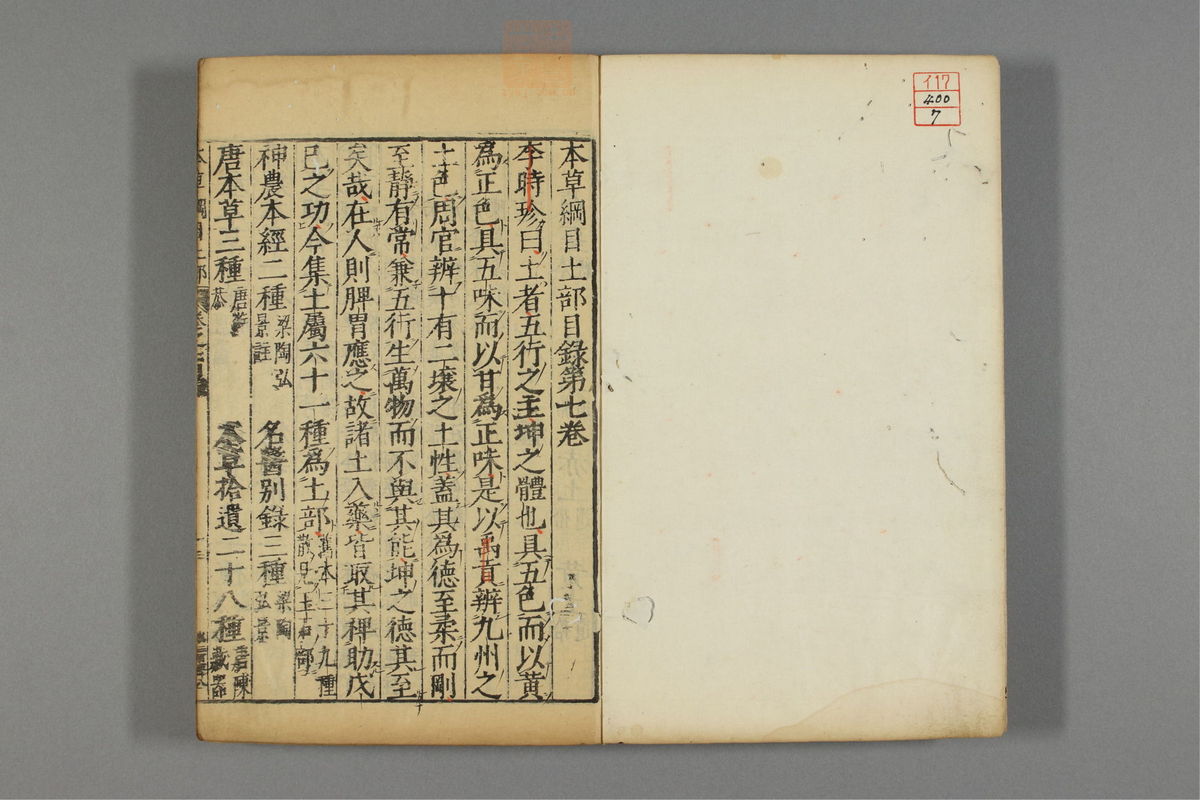 本草綱目土部目錄第七卷
李時珍曰土者五行之主坤之體也具五色而以黃
為正色具五味而以甘為正味是以禹貢辨九州之
土色周官辨十有二壤之土性蓋其為德至柔而剛
至靜有常兼五行生萬物而不與其能坤之德其至
矣哉在人則脾胃應之故諸土入藥皆取其裨助戊
己之功今集土屬六十一種為土部 舊本三十九種 散見玉石部
神農本經二種 梁陶弘景註 名醫別錄三種 梁陶弘景
唐本草三種 唐蘇恭 本草拾遺二十八種 唐陳藏器
本草綱目土部
117
400
7